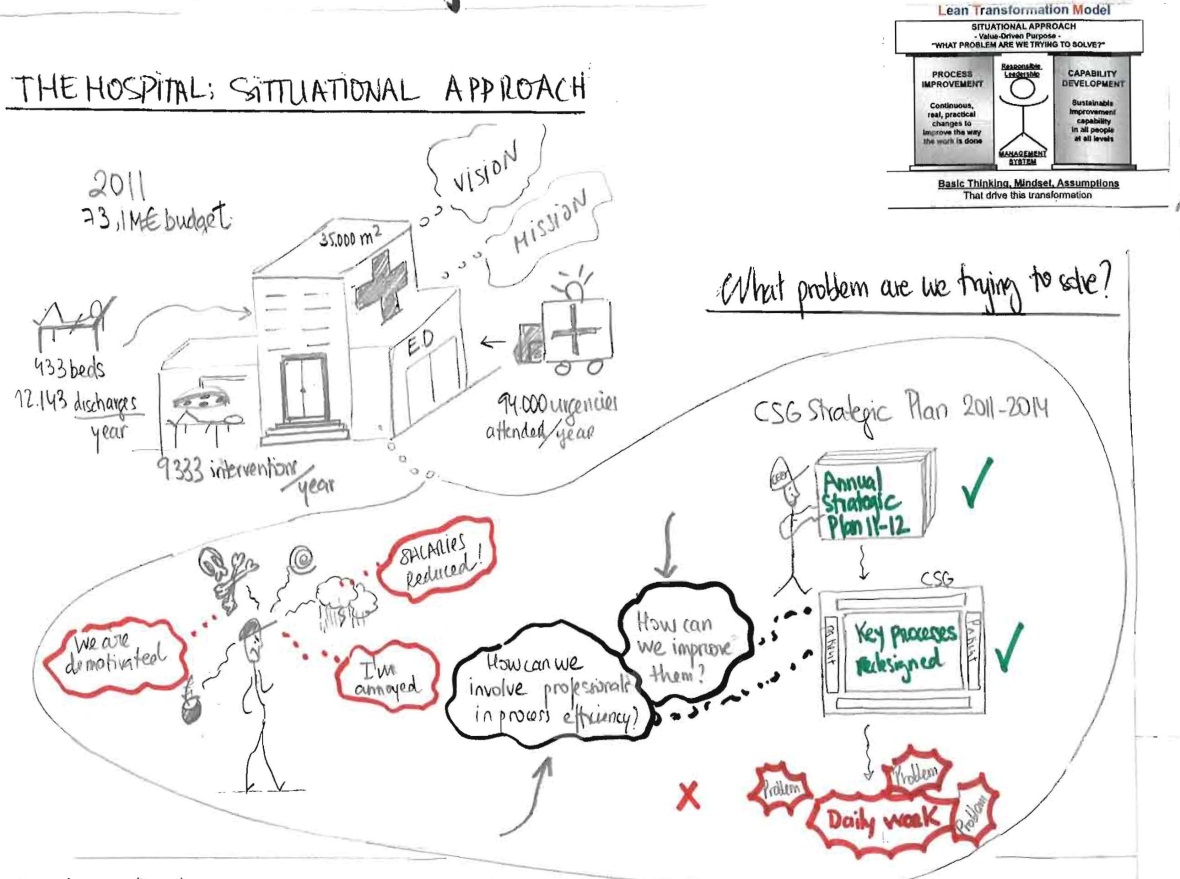 Lean Transformation Model
SITUATIONAL APPROACH
- Value-Driven Purpose -
"WHAT PROBLEM ARE WE TRYING TO SOLVE?"
PROCESS
IMPROVEMENT
Continuous,
real, practical
changes to
improve the way
the work is done
Responsible
Leadership
MANAGEMENT
SYSTEM
CAPABILITY
DEVELOPMENT
Sustainable
improvement
capability
in all people
at all levels
Basic Thinking, Mindset, Assumptions
That drive this transformation
THE HOSPITAL: SITTUATIONAL APPROACH
2011
73,1M€ budget
VISION
MISSION
35.000 m²
E.D
433 beds
12.143 discharges
year
9333 interventions/
year
94.000 urgencies
attended/year
What problem are we trying to solve?
CSG Strategic Plan 2011-2014
Annual
Strategic
Plan 11-12
CSG
Key proceses
redesigned
Problem
Problem
Problem
Daily work
How can
we improve
them?
How can we
involve professionals
in process efficiency?
SALARIES
Reduced!
We are
demotivated
I'm
annoyed